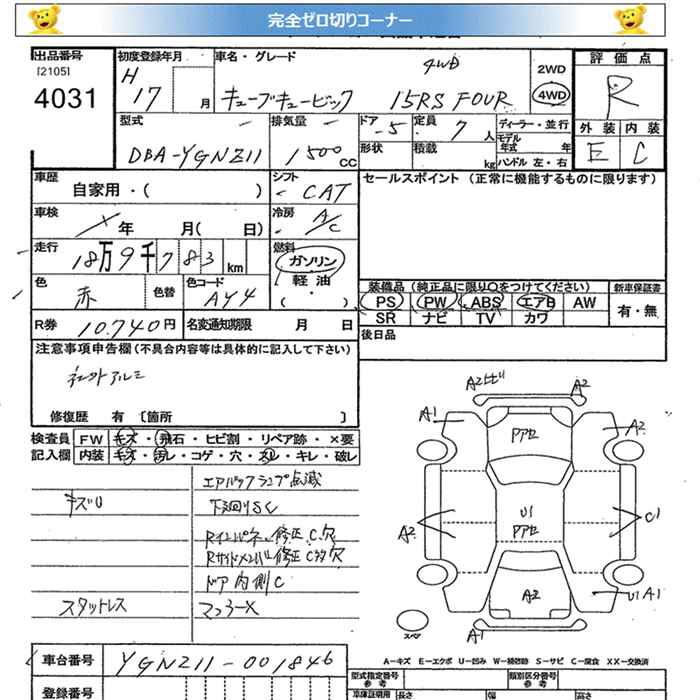 完全ゼロ切りコーナー
出品番号
[2105]
4031
初度登録年月
H
17 月
車名・グレード
4WD
キューブキュービック 15RS FOUR
2WD
4WD
評価点
R
外装 内装
E C
型式
DBA-YGNZ11
排気量
1500 CC
ドア
-5
定員
7人
形状
積載
kg
ディーラー・並行
モデル
年式 年
ハンドル 左・右
車歴
自家用・( )
シフト
CAT
セールスポイント (正常に機能するものに限ります)
車検
年 月( 日)
冷房
A/C
走行
18万9千783 km
燃料
ガソリン
軽油
( )
色
赤
色替
色コード
AY4
装備品 (純正品に限り○をつけてください)
PS PW ABS エアB AW
SR ナビ TV カワ
新車保証書
有・無
R券 10.740円
名変通知期限 月 日
後日品
注意事項申告欄 (不具合内容等は具体的に記入して下さい)
社外アルミ
修復歴 有 〔箇所 〕
検査員 FW キズ・飛石・ヒビ割・リペア跡・×要
記入欄 内装 キズ・汚レ・コゲ・穴・スレ・キレ・破レ
エアバックランプ点滅
キズU
下廻りSC
Rインパネ修正C穴
Rサイドメンバー修正C穴
ドア内側C
スタットレス
マフラーX
A2ヒビ
A2
A1
A2
Pアセ
A2
U1
Pアセ
C1
A2
U1A1
A1
スペア
A-キズ E-エクボ U-凹み W-補修跡 S-サビ C-腐食 XX-交換済
車台番号
YGNZ11-001846
登録番号
型式指定番号
参考
類別区分番号
参考
車庫証明用 長さ 幅 高さ